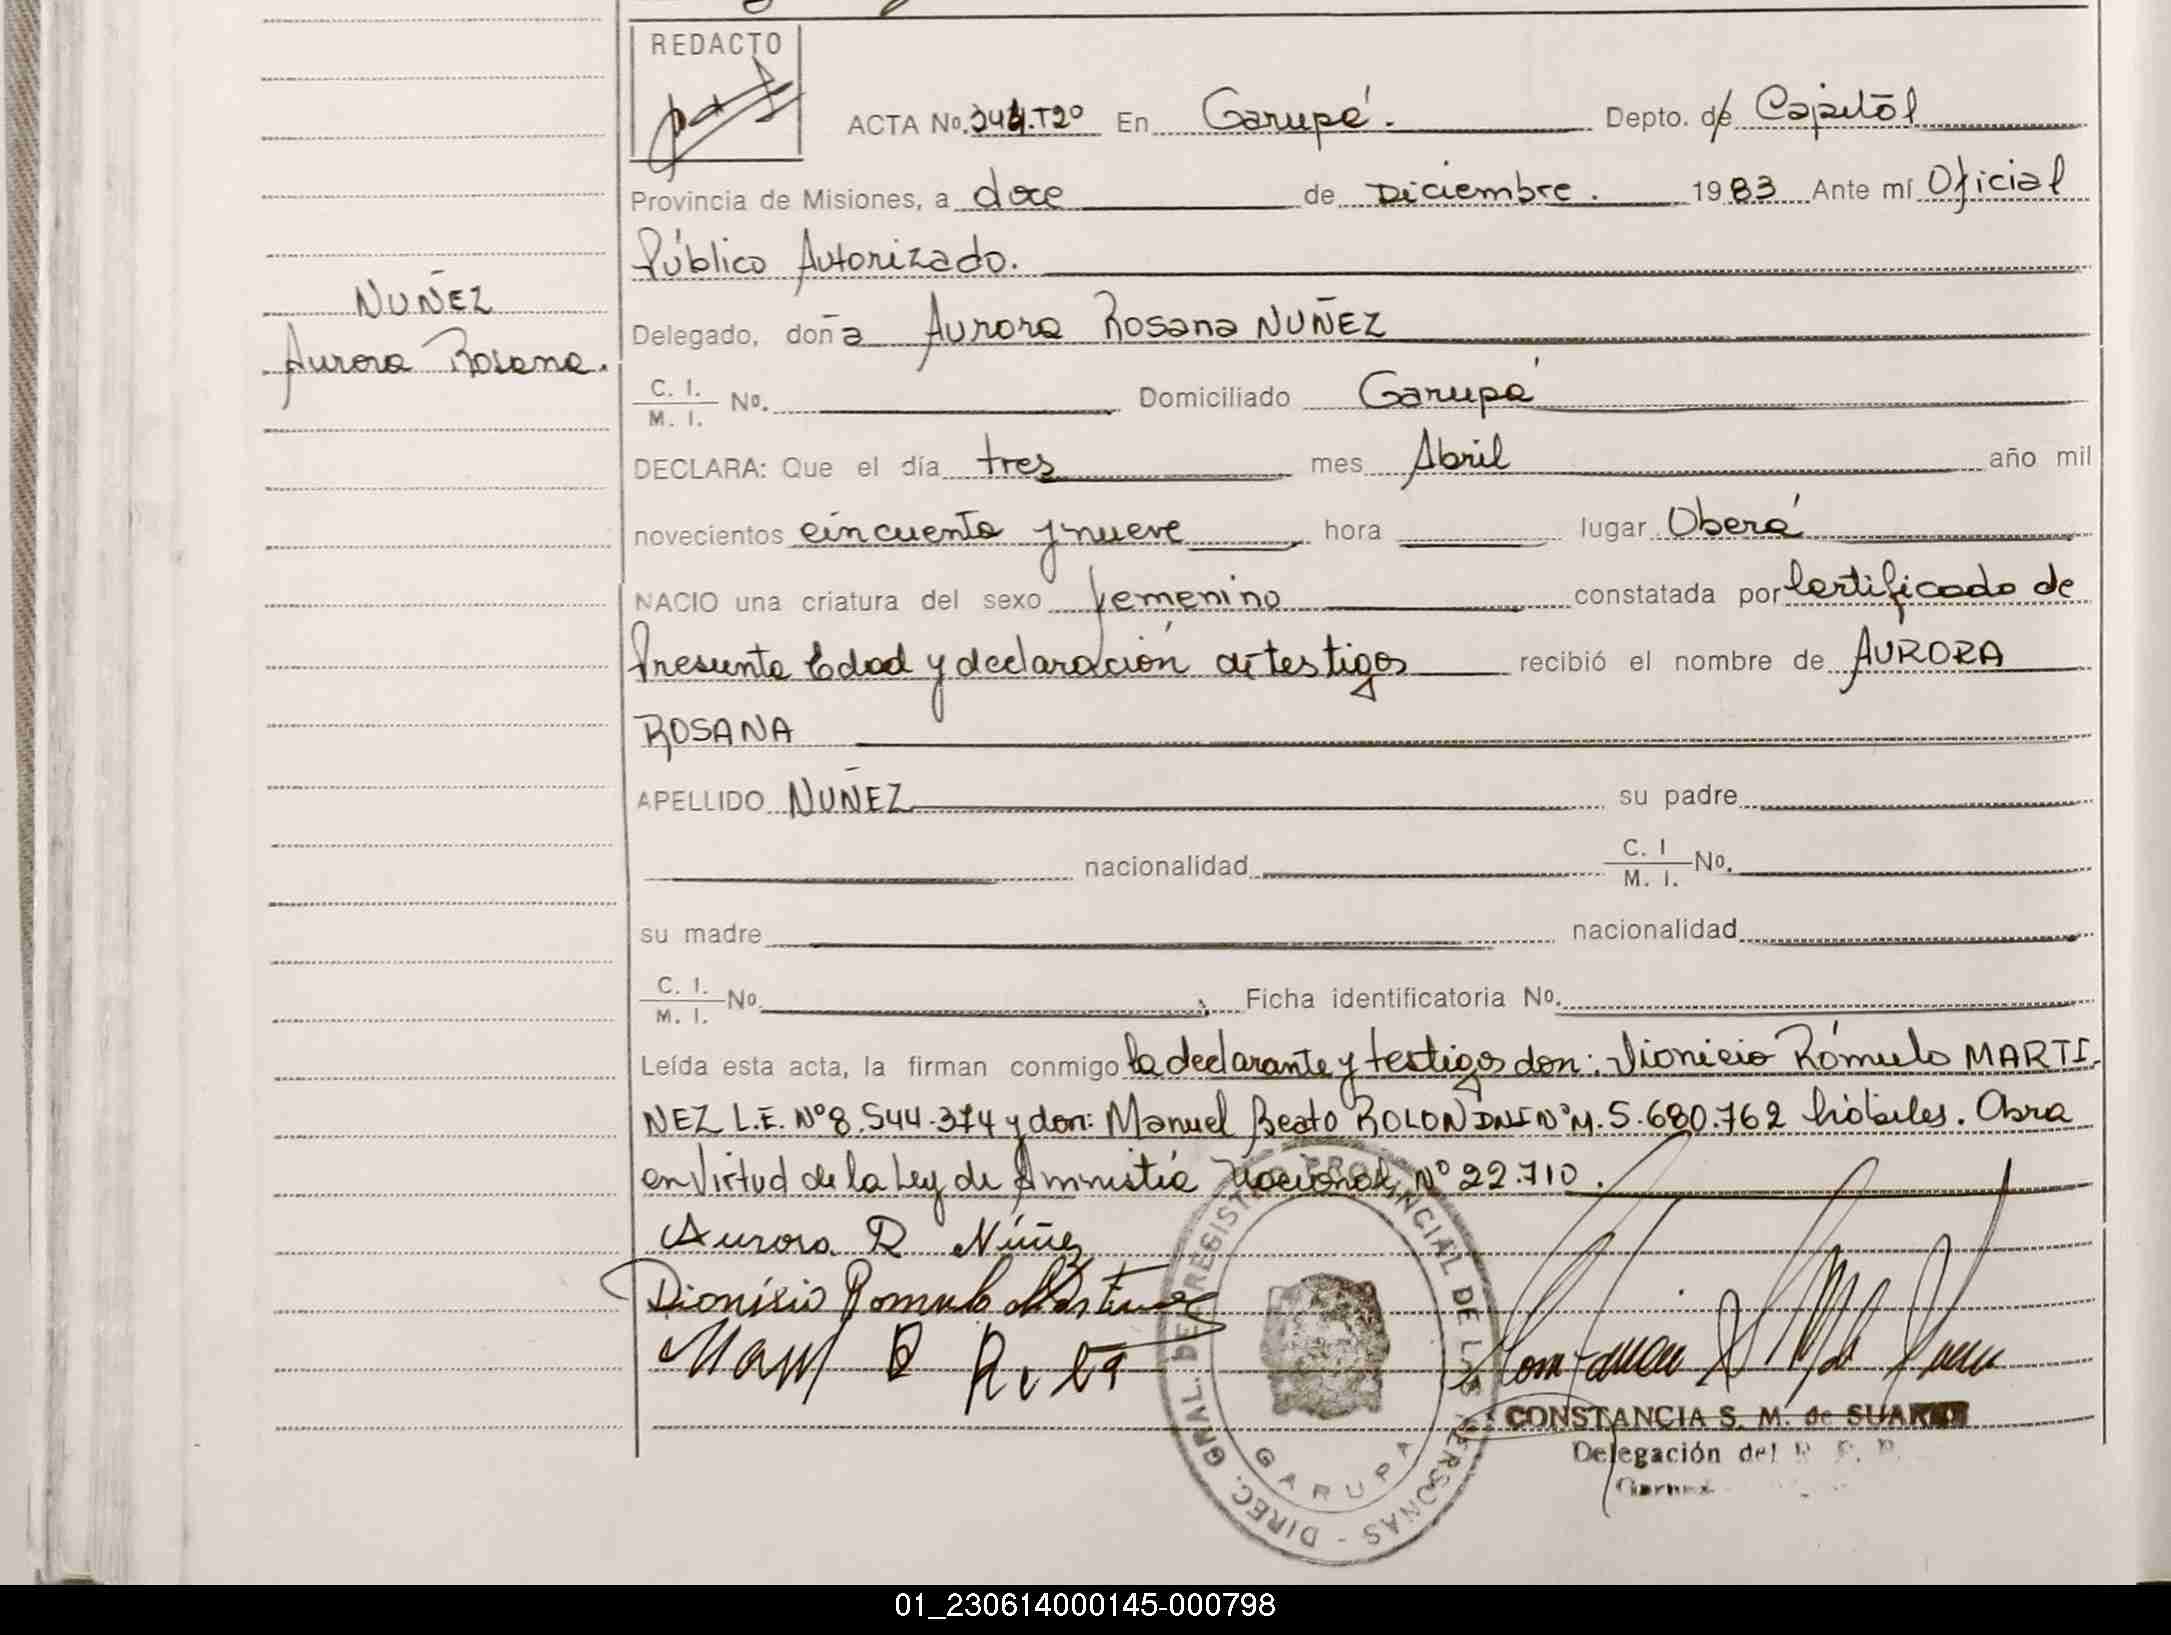 REDACTO
ACTA No. 344.T2º En Garupá. Depto. de Capitál
Provincia de Misiones, a doce de Diciembre. 1983 Ante mí Oficial
Público Autorizado.
NUÑEZ
Aurora Rosana.
Delegado, doña Aurora Rosana NUÑEZ
C. I.
M. I. No. Domiciliado Garupá
DECLARA: Que el día tres mes Abril año mil
novecientos cincuenta y nueve hora lugar Oberá
NACIO una criatura del sexo femenino constatada por Certificado de
Presunta Edad y declaración de testigos recibió el nombre de AURORA
ROSANA
APELLIDO NUÑEZ su padre
nacionalidad C. I
M. I. No.
su madre nacionalidad
C. I.
M. I. No. Ficha identificatoria No.
Leída esta acta, la firman conmigo la declarante y testigos don: Dionicio Rómulo MARTI-
NEZ L.E. Nº 8.544.374 y don: Manuel Beato ROLON DNI Nº M. 5.680.762 hábiles. Obra
en Virtud de la Ley de Amnistía Nacional Nº 22.710.
Aurora R Núñez
Dionisio Romulo Martinez
DIREC. GRAL. DE REGISTRO PROVINCIAL DE LAS PERSONAS -
GARUPA
CONSTANCIA S. M. de SUAREZ
Delegación del R. P. P.
01_230614000145-000798